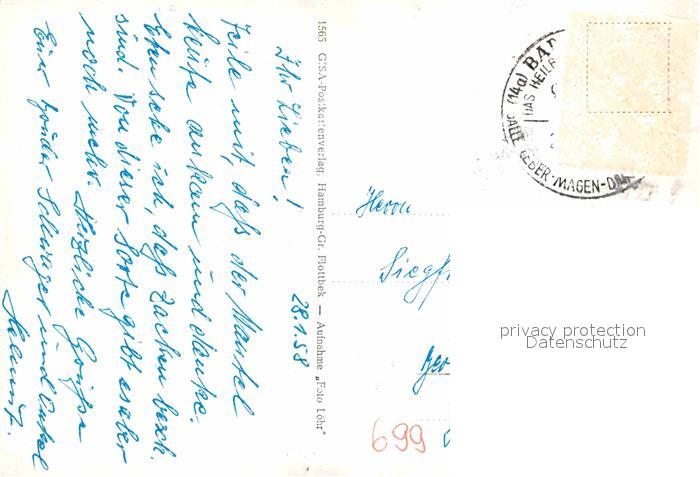 28.1.58
Ihr Lieben!
Teile mit, daß der Mantel
heute ankam und danke.
sehe ich, daß Sachen
sind. Von dieser Sorte gibt es aber
noch mehr. Herzliche Grüße
Euer Schwager und Onkel
Helmut.
1565 GISA-Postkartenverlag, Hamburg-Gr. Flottbek — Aufnahme „Foto Löhr"
(14a) BAD
DAS HEILB
LEBER-MAGEN-DAR
Herrn
Siegf
699
privacy protection
Datenschutz